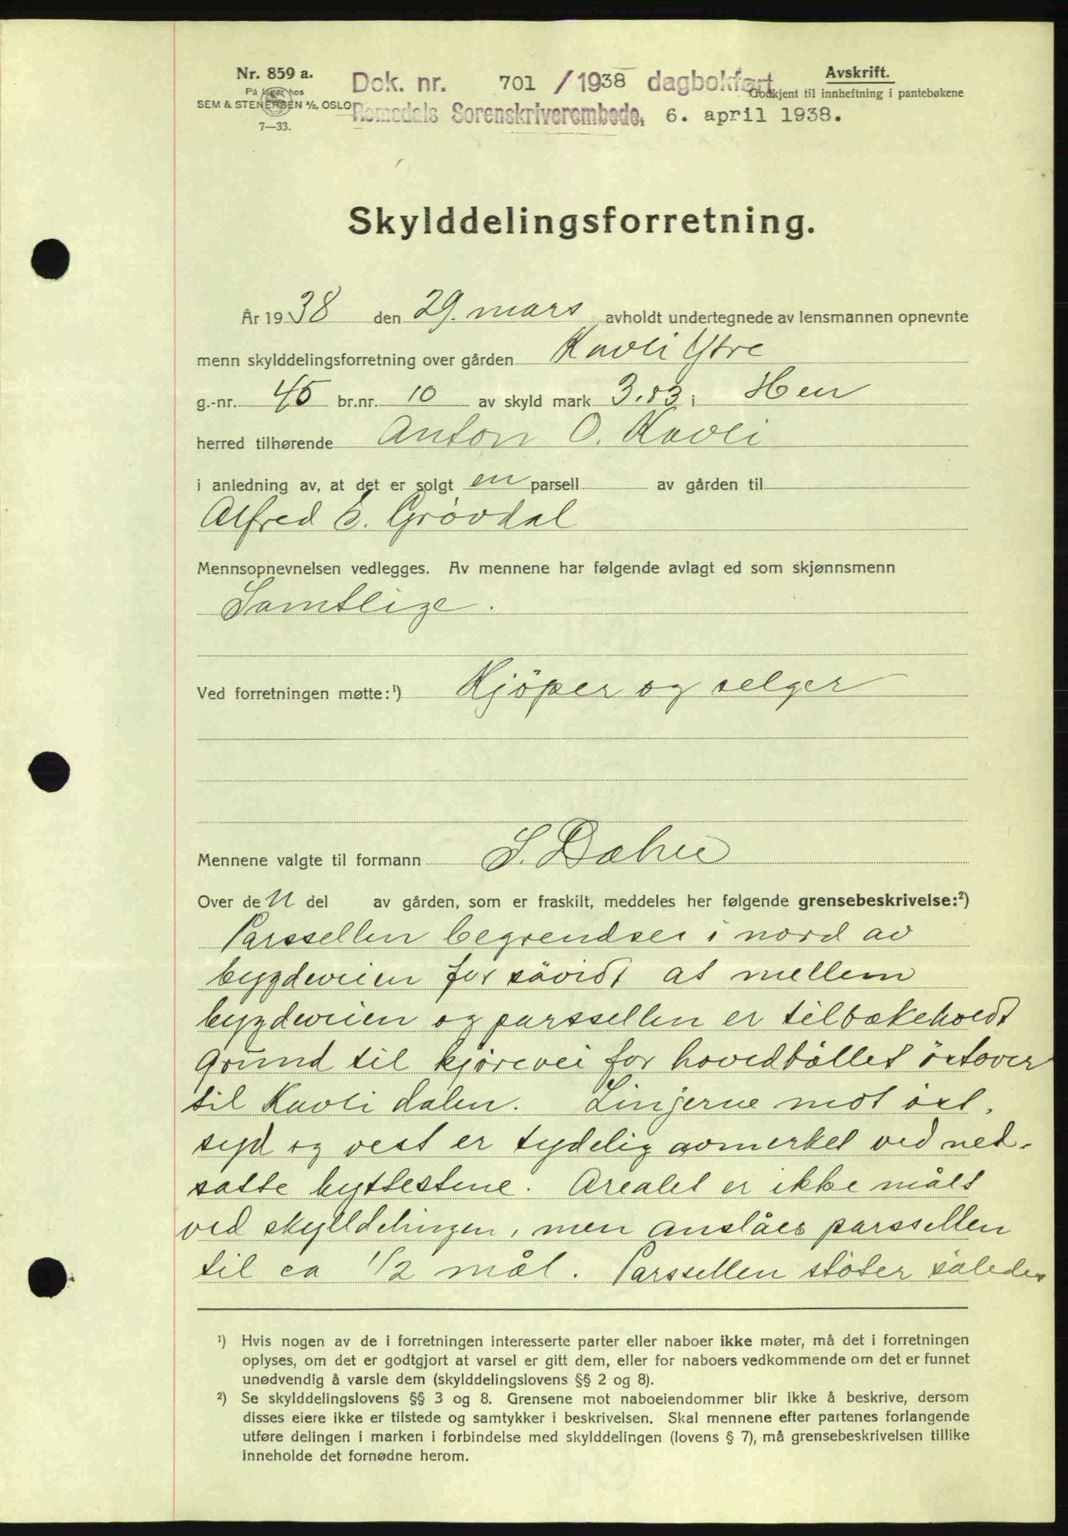 Nr. 859 a.
På lager hos
SEM & STENERSEN A/S, OSLO
7—33.
Dok. nr. 701 /1938 dagbokført
Romsdals Sorenskriverembede, 6. april 1938.
Avskrift.
Godkjent til innheftning i pantebøkene
Skylddelingsforretning.
År 1938 den 29. mars avholdt undertegnede av lensmannen opnevnte
menn skylddelingsforretning over gården Kavli Ytre
g.-nr. 45 br.nr. 10 av skyld mark 3.83 i Hen
herred tilhørende Anton O. Kavli
i anledning av, at det er solgt en parsell av gården til
Alfred E. Grövdal
Mennsopnevnelsen vedlegges. Av mennene har følgende avlagt ed som skjønnsmenn
Samtlige.
Ved forretningen møtte:¹) Kjöper og selger
Mennene valgte til formann S. Dahle
Over den del av gården, som er fraskilt, meddeles her følgende grensebeskrivelse:²)
Parssellen begrendses i nord av
bygdeveien for såvidt at mellem
bygdeveien og parssellen er tilbakeholdt
grund til kjörevei for hovedbøllet östover
til Kavli dalen. Linjerne mot öst,
syd og vest er tydelig avmerket ved ned-
satte byttestene. Arealet er ikke målt
ved skylddelingen, men anslåes parssellen
til ca 1/2 mål. Parssellen stöter således
¹) Hvis nogen av de i forretningen interesserte parter eller naboer ikke møter, må det i forretningen
oplyses, om det er godtgjort at varsel er gitt dem, eller for naboers vedkommende om det er funnet
unødvendig å varsle dem (skylddelingslovens §§ 2 og 8).
²) Se skylddelingslovens §§ 3 og 8. Grensene mot naboeiendommer blir ikke å beskrive, dersom
disses eiere ikke er tilstede og samtykker i beskrivelsen. Skal mennene efter partenes forlangende
utføre delingen i marken i forbindelse med skylddelingen (lovens § 7), må grensebeskrivelsen tillike
inneholde det fornødne herom.